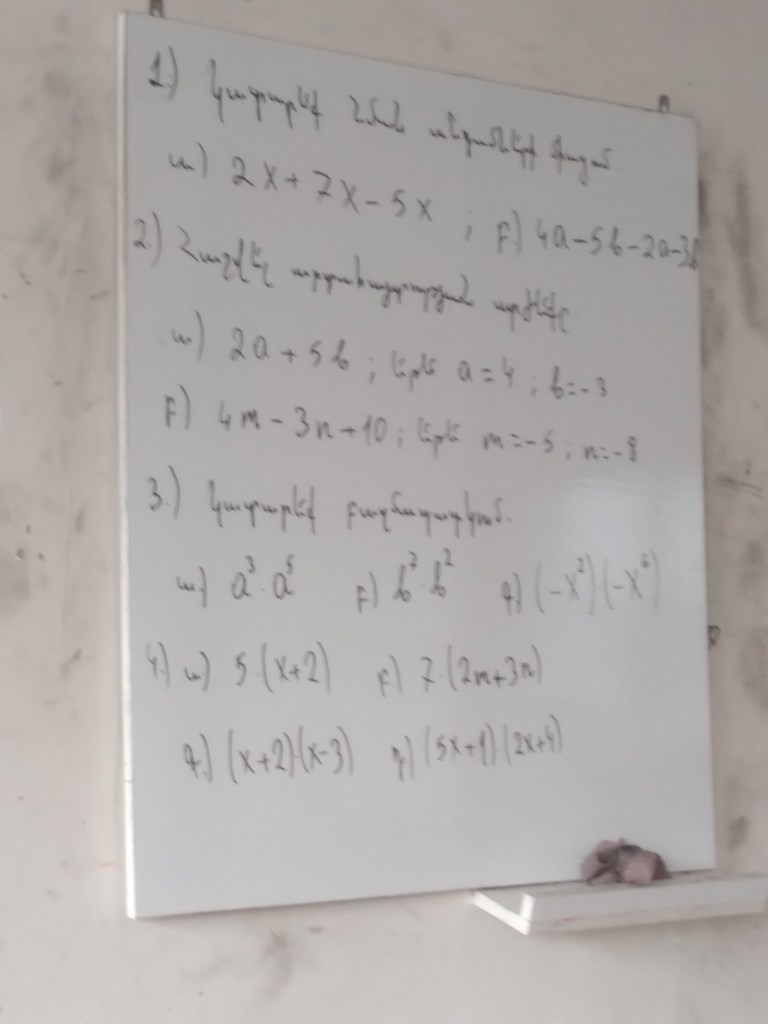 1.) Կատարել նման անդամների միացում.
ա) 2x + 7x - 5x ; բ) 4a - 5b - 2a - 3b
2.) Հաշվել արտահայտության արժեքը.
ա) 2a + 5b ; եթե a = 4 ; b = -3
բ) 4m - 3n + 10 ; եթե m = -5 ; n = -8
3.) Կատարել բազմապատկում.
ա) a³ · a⁵ բ) b⁷ · b² գ) (-x²) · (-x⁶)
4.) ա) 5 · (x+2) բ) 7 · (2m+3n)
գ.) (x+2) · (x-3) դ) (5x+1) · (2x+4)